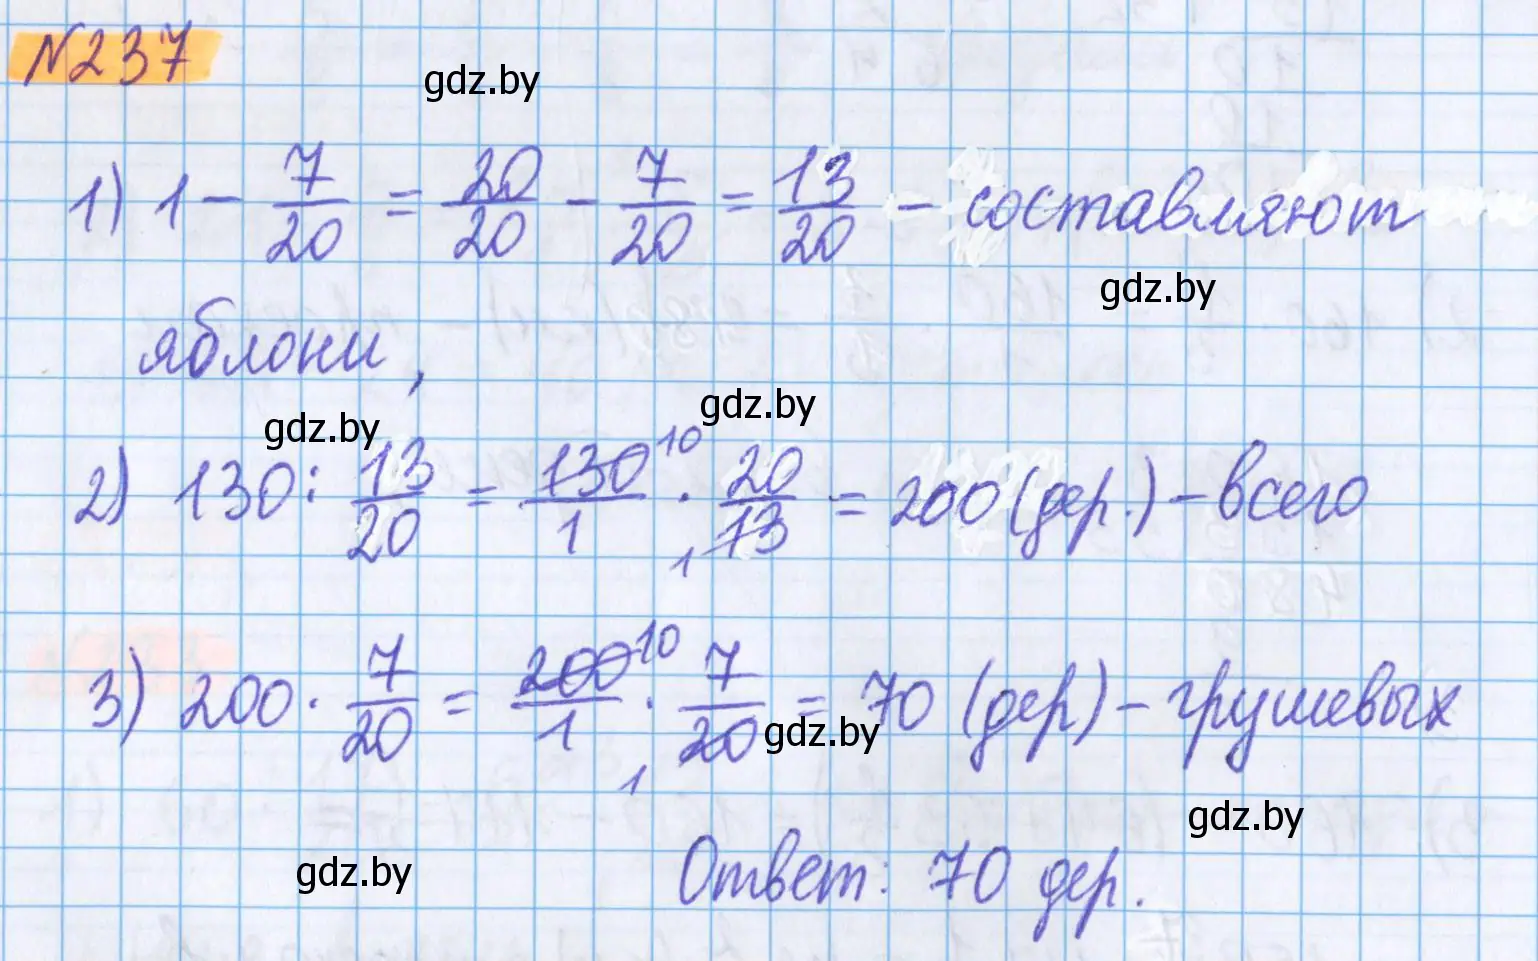 №237
gdz.by
1) 1 - 7/20 = 20/20 - 7/20 = 13/20 - составляют
gdz.by
яблони,
gdz.by
gdz.by
2) 130 : 13/20 = 130/1 10 · 20/13 1 = 200 (дер.) - всего
3) 200 · 7/20 = 200/1 10 · 7/20 1 = 70 (дер) - грушевых
gdz.by
gdz.by
gdz.by
Ответ: 70 дер.